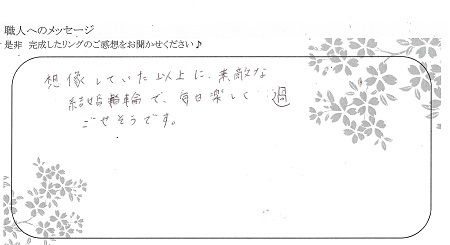 職人へのメッセージ
是非 完成したリングのご感想をお聞かせください♪
想像していた以上に、素敵な
結婚指輪で、毎日楽しく 過
ごせそうです。